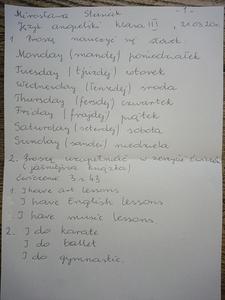 Mirosława
- 1 -
Język angielski klasa III, 21.03.20
1. Proszę nauczyć się
Monday (mandej) poniedziałek
Tuesday (tjuzdej) wtorek
Wednesday (łenzdej) środa
Thursday (fersdej) czwartek
Friday (frajdej) piątek
Saturday (saterdej) sobota
Sunday (sandei) niedziela
2. Proszę uzupełnić w zeszycie ćwiczeń
(jaśniejsza książka)
ćwiczenie 3 s 43
1. I have art lessons
I have English lessons
I have music lessons.
2. I do karate
I do ballet
I do gymnastic.